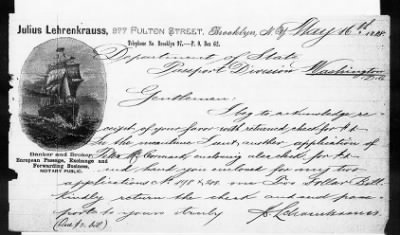 Julius Lehrenkrauss, 377 FULTON STREET, Brooklyn, N.Y. May 16th 188
Telephone No. Brooklyn 97.—P. O. Box 62.
Department of State
Passport Division Washington
D.C.
Gentlemen:
I beg to acknowledge re-
ceipt of your favor with returned check for $
In the meantime I sent another application of
enclosing also check for $
and hand you enclosed for my two
applications No. 198 & 201. one Two Dollar Bill
Kindly return the check and send pass-
port to yours truly J. Lehrenkrauss
Banker and Broker,
European Passage, Exchange and
Forwarding Business,
NOTARY PUBLIC.
(Encl. $2. bill)